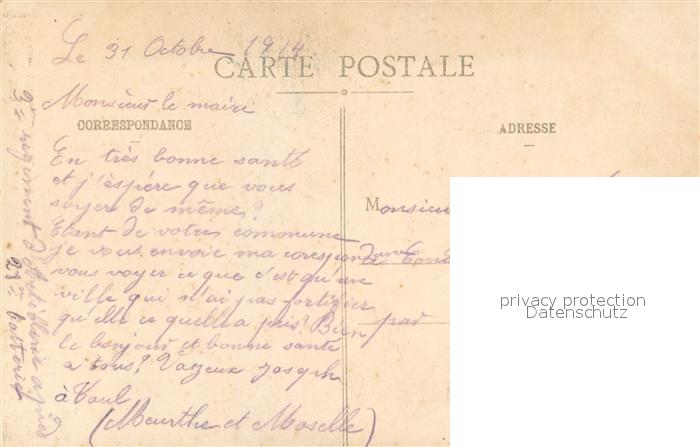 Le 31 Octobre 1914
CARTE POSTALE
Monsieur le maire
CORRESPONDANCE
En très bonne santé
et j'éspére que vous
soyer de même?
Etant de votres commune
je vous envoie ma corespondance
vous voyer ce que c'est qu'une
ville qui n'ai pas fortifier
qu'elle ce quelle a pris? Bien
le bonjour et bonne santé
a tous? Vazeux Joseph
à Toul
(Meurthe et Moselle)
regiment d'Artillerie a pied
batterie
ADRESSE
Monsieur
par
privacy protection
Datenschutz